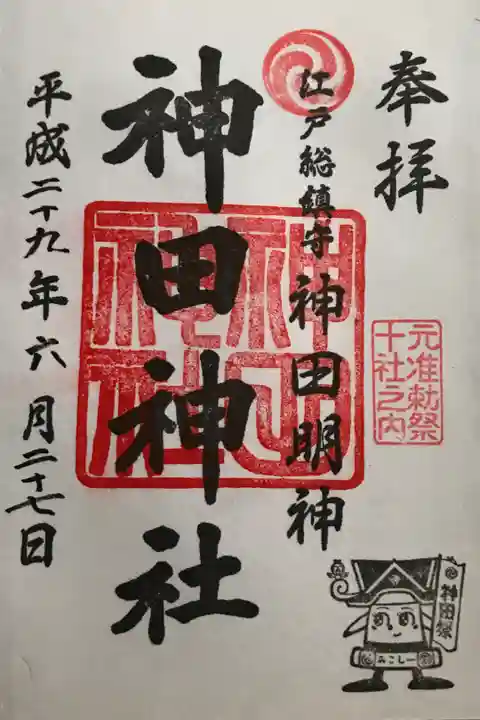 奉拝
元准勅祭
十社之内
江戸総鎮守 神田明神
神田神社
神田
神社
平成二十九年六月二十七日
神田祭
みこしー